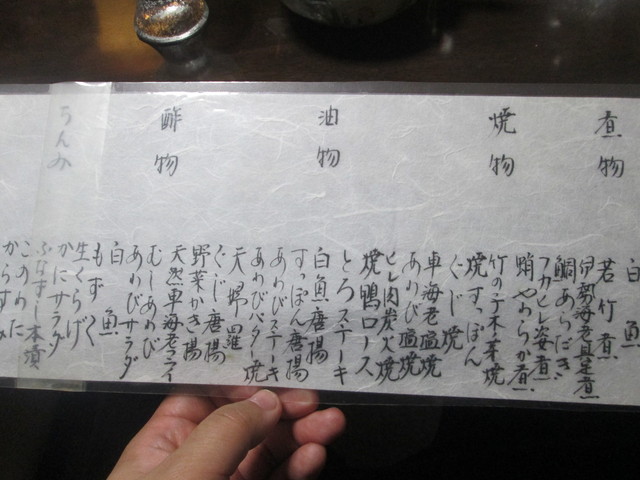 煮物
白魚
若竹煮
伊勢海老具足煮
鯛あらだき
フカヒレ姿煮
蛸やわらか煮
焼物
竹の子木の芽焼
焼すっぽん
ぐじ焼
車海老塩焼
あわび塩焼
ヒレ肉炭火焼
焼鴨ロース
とろステーキ
油物
白魚唐揚
すっぽん唐揚
あわびステーキ
あわびバター焼
天婦羅
ぐじ唐揚
野菜かき揚
天然車海老フライ
酢物
むしあわび
あわびサラダ
白魚
もずく
生くらげ
かにサラダ
ちんみ
ふなずし本漬
このわた
からすみ